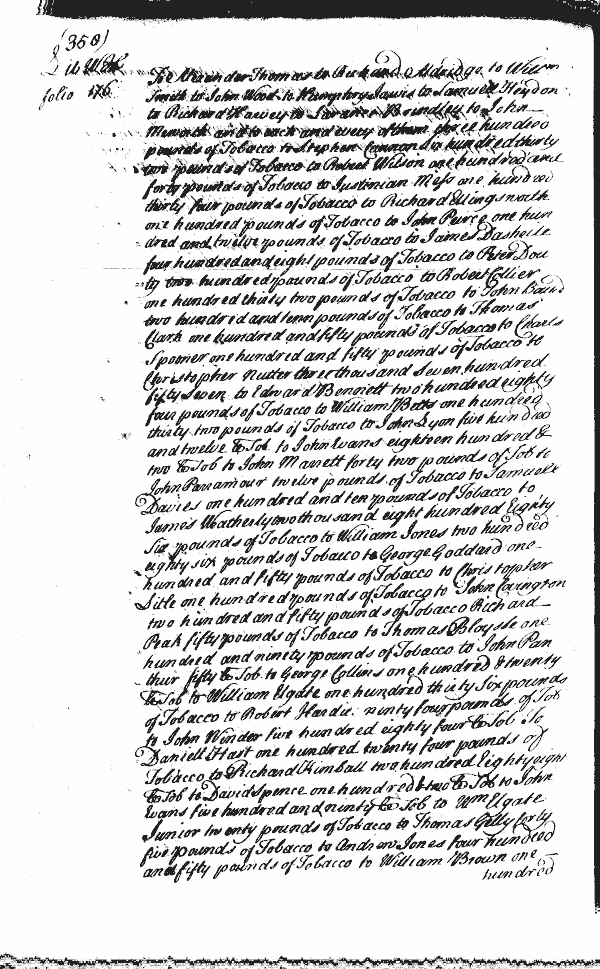 (358)
Lib WHL
folio 176
The Alexander Thomas to Richard Aldridge to Willm
Smith to John Wood to Humphry Jawis to Samuel Heydon
to Richard Harvey to Brindley to John
and to each and every of them three hundred
pounds of Tobacco to Stephen Cannon Six hundred thirty
two pounds of Tobacco to Robert Wilson one hundred and
forty pounds of Tobacco to Justinian Mess one hundred
thirty four pounds of Tobacco to Richard Ellingsworth
one hundred pounds of Tobacco to John Peirce one hun
dred and twelve pounds of Tobacco to James Dashiele
four hundred and eight pounds of Tobacco to Peter Dou
ty two hundred pounds of Tobacco to Robert Collier
one hundred thirty two pounds of Tobacco to John Baund
two hundred and tenn pounds of Tobacco to Thomas
Clark one hundred and fifty pounds of Tobacco to Charls
Spooner one hundred and fifty pounds of Tobacco to
Christopher Nutter three thousand seven hundred
fifty seven to Edward Bennett two hundred eighty
four pounds of Tobacco to William Betts one hundred
thirty two pounds of Tobacco to John Lyon five hundred
and twelve to Tob to John Evans eighteen hundred &
two to Tob to John Marrett forty two pounds of Tob to
John Parramour twelve pounds of Tobacco to Samuell
Davies one hundred and ten pounds of Tobacco to
James Weatherly two thousand eight hundred Eighty
Six pounds of Tobacco to William Jones two hundred
eighty six pounds of Tobacco to George Goddard one
hundred and fifty pounds of Tobacco to Christopher
Litle one hundred pounds of Tobacco to John Covington
two hundred and fifty pounds of Tobacco Richard
Peak fifty pounds of Tobacco to Thomas Bloysse one
hundred and ninety pounds of Tobacco to John Pan
ther fifty to Tob. to George Collins one hundred & twenty
to Tob to William Elgate one hundred thirty Six pounds
of Tobacco to Robert Hardie ninty four pounds of Tob
to John Winder five hundred eighty four to Tob To
Daniell Hast one hundred twenty four pounds of
Tobacco to Richard Kimball two hundred Eighty eight
to Tob to David Spence one hundred & two to Tob to John
Evans five hundred and ninty to Tob to Wm Elgate
Junior twenty pounds of Tobacco to Thomas Gilly forty
five pounds of Tobacco to Andrew Jones four hundred
and fifty pounds of Tobacco to William Brown one
hundred